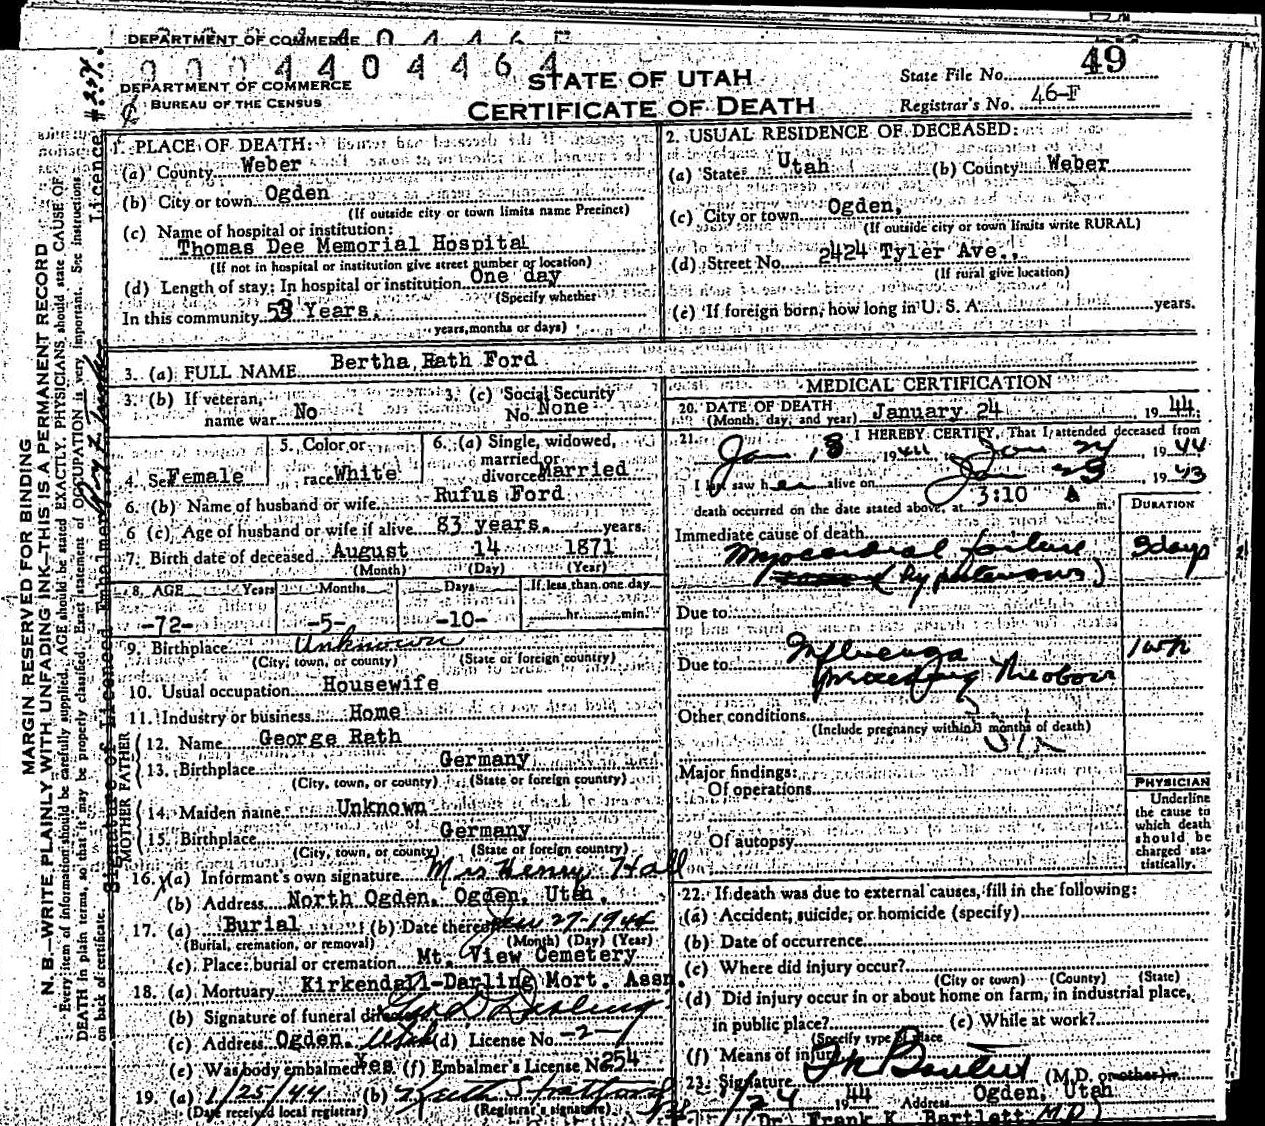 DEPARTMENT OF COMMERCE
0004404464
DEPARTMENT OF COMMERCE
BUREAU OF THE CENSUS
STATE OF UTAH
CERTIFICATE OF DEATH
State File No. 49
Registrar's No. 46-F
1. PLACE OF DEATH:
(a) County Weber
(b) City or town Ogden
(If outside city or town limits name Precinct)
(c) Name of hospital or institution:
Thomas Dee Memorial Hospital
(If not in hospital or institution give street number or location)
(d) Length of stay: In hospital or institution One day
(Specify whether
In this community 53 Years.
years, months or days)
2. USUAL RESIDENCE OF DECEASED:
(a) State Utah (b) County Weber
(c) City or town Ogden,
(If outside city or town limits write RURAL)
(d) Street No. 2424 Tyler Ave.,
(If rural give location)
(e) If foreign born, how long in U. S. A. years.
3. (a) FULL NAME Bertha Rath Ford
3. (b) If veteran, name war No
3. (c) Social Security No. None
4. Sex Female
5. Color or race White
6. (a) Single, widowed, married or divorced Married
6. (b) Name of husband or wife Rufus Ford
6 (c) Age of husband or wife if alive 83 years. years.
7. Birth date of deceased August 14 1871
(Month) (Day) (Year)
8. AGE Years Months Days If less than one day
-72- -5- -10- hr. min.
9. Birthplace Unknown
(City, town, or county) (State or foreign country)
10. Usual occupation Housewife
11. Industry or business Home
FATHER
12. Name George Rath
13. Birthplace Germany
(City, town, or county) (State or foreign country)
MOTHER
14. Maiden name Unknown
15. Birthplace Germany
(City, town, or county) (State or foreign country)
16. (a) Informant's own signature Mrs Henry Hall
(b) Address North Ogden, Ogden, Utah.
17. (a) Burial (b) Date thereof Jan 27-1944
(Burial, cremation, or removal) (Month) (Day) (Year)
(c) Place: burial or cremation Mt. View Cemetery
18. (a) Mortuary Kirkendall-Darling Mort. Assn.
(b) Signature of funeral director Darling
(c) Address Ogden, Utah (d) License No. -2-
(e) Was body embalmed Yes (f) Embalmer's License No. 254
19. (a) 1/25/44 (b)
(Date received local registrar) (Registrar's signature)
MEDICAL CERTIFICATION
20. DATE OF DEATH January 24 1944.
(Month, day, and year)
21. I HEREBY CERTIFY, That I attended deceased from
Jan 18 1944, to Jan 24, 1944
I last saw her alive on Jan 23, 1943
death occurred on the date stated above, at 3:10 A m.
DURATION
Immediate cause of death
Myocardial failure 3 days
(hypertensive)
Due to
Due to Influenza 1 wk
preceding
Other conditions
(Include pregnancy within 3 months of death)
Major findings:
Of operations
Of autopsy
PHYSICIAN
Underline
the cause to
which death
should be
charged sta-
tistically.
22. If death was due to external causes, fill in the following:
(a) Accident, suicide, or homicide (specify)
(b) Date of occurrence
(c) Where did injury occur?
(City or town) (County) (State)
(d) Did injury occur in or about home on farm, in industrial place,
in public place? (e) While at work?
(Specify type of place
(f) Means of injury
23. Signature (M.D. or other)
1/24 1944 Address Ogden, Utah
Dr. Frank K. Bartlett M.D.
MARGIN RESERVED FOR BINDING
N. B.—WRITE PLAINLY WITH UNFADING INK—THIS IS A PERMANENT RECORD
Every item of information should be carefully supplied. AGE should be stated EXACTLY. PHYSICIANS should state CAUSE OF
DEATH in plain terms, so that it may be properly classified. Exact statement of OCCUPATION is very important. See instructions
on back of certificate.
Signature of Licensed Embalmer
License